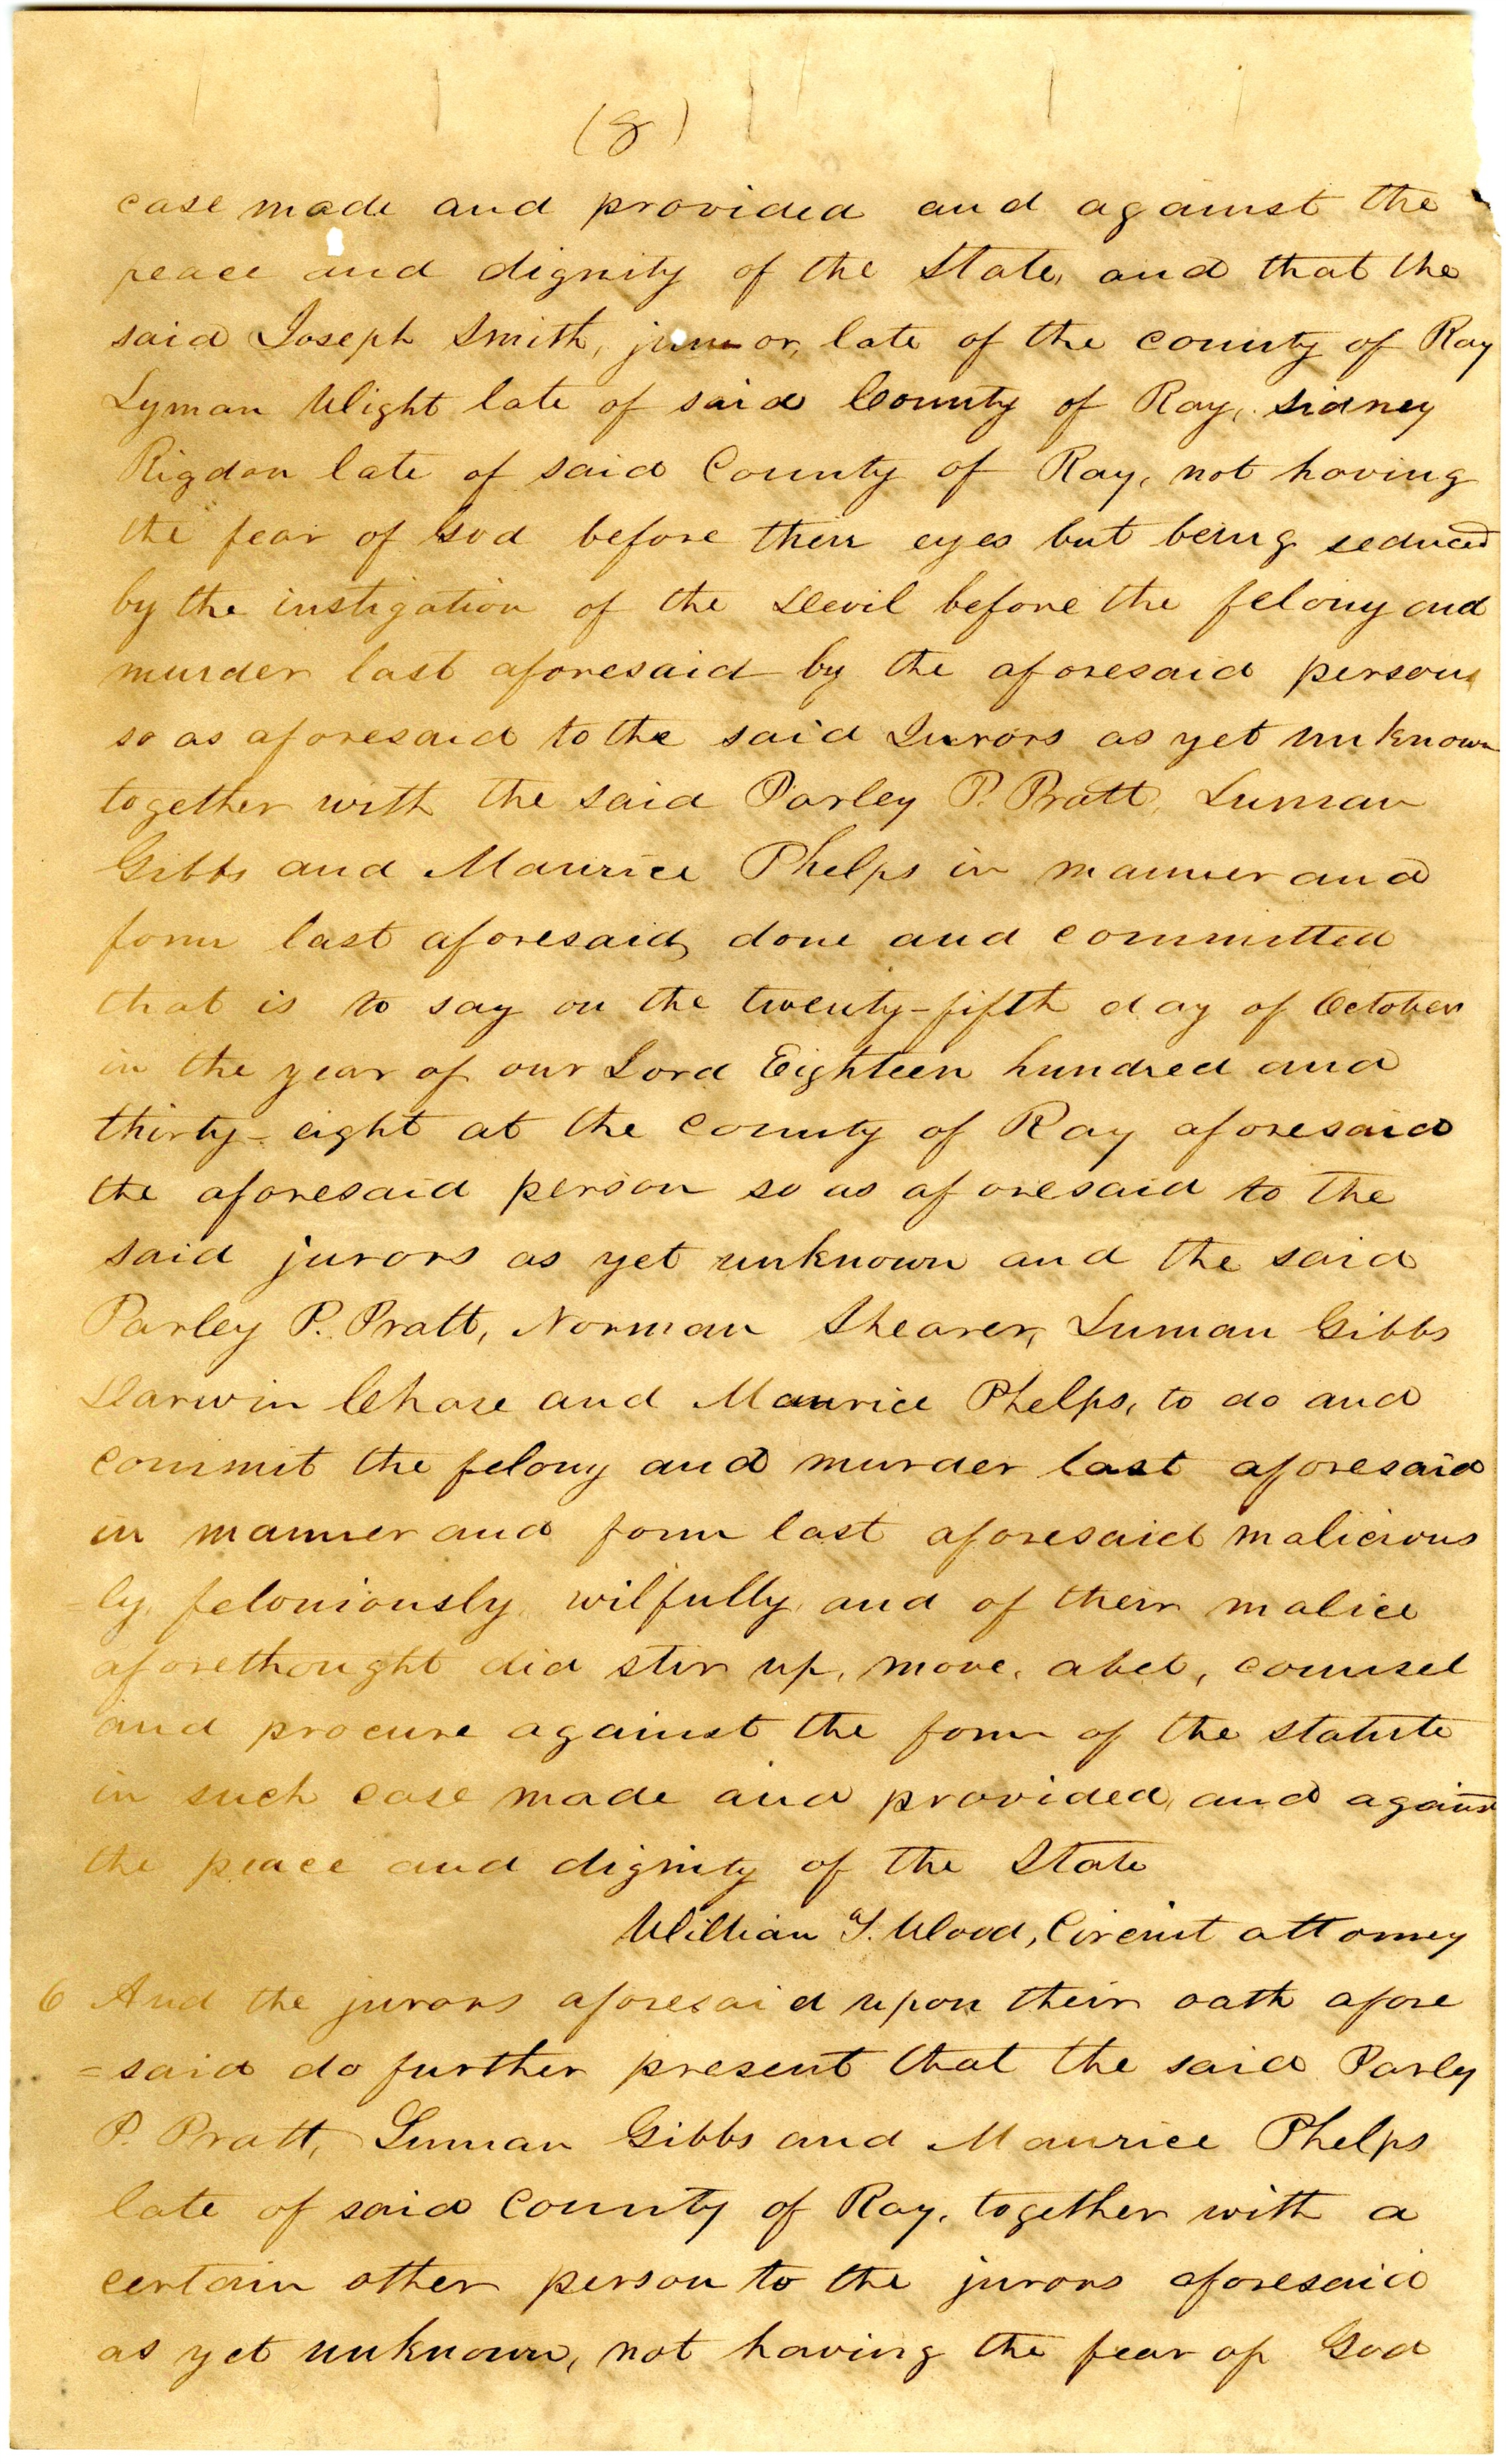 (8)
case made and provided and against the
peace and dignity of the State, and that the
said Joseph Smith, junior, late of the county of Ray
Lyman Wight late of said County of Ray, Sidney
Rigdon late of said County of Ray, not having
the fear of God before their eyes but being seduced
by the instigation of the Devil before the felony and
murder last aforesaid by the aforesaid person
so as aforesaid to the said Jurors as yet unknown
together with the said Parley P. Pratt, Luman
Gibbs and Maurice Phelps in manner and
form last aforesaid, done and committed
that is to say on the twenty-fifth day of October
in the year of our Lord Eighteen hundred and
thirty-eight at the county of Ray aforesaid
the aforesaid person so as aforesaid to the
said jurors as yet unknown and the said
Parley P. Pratt, Norman Shearer, Luman Gibbs
Darwin Chase and Maurice Phelps, to do and
commit the felony and murder last aforesaid
in manner and form last aforesaid malicious
=ly, feloniously, wilfully, and of their malice
aforethought did stir up, move, abet, counsel
and procure against the form of the statute
in such case made and provided, and against
the peace and dignity of the State
William T. Wood, Circuit attorney
6 And the jurors aforesaid upon their oath afore
=said do further present that the said Parly
P. Pratt, Luman Gibbs and Maurice Phelps
late of said County of Ray, together with a
certain other person to the jurors aforesaid
as yet unknown, not having the fear of God